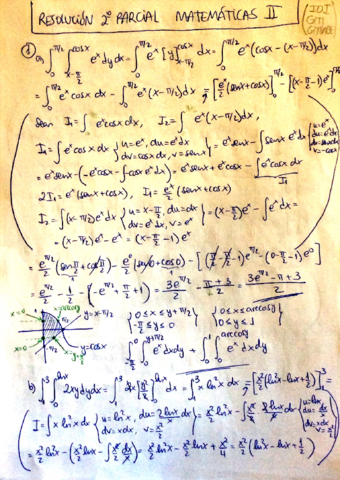 RESOLUCIÓN 2º PARCIAL MATEMÁTICAS II
(IDI GITI
1) a) ∫₀^{π/2} ∫_{x-π/2}^{cosx} eˣ dy dx = ∫₀^{π/2} eˣ [y]_{x-π/2}^{cosx} dx = ∫₀^{π/2} eˣ (cosx - (x-π/2)) dx
= ∫₀^{π/2} eˣ cosx dx - ∫₀^{π/2} eˣ (x-π/2) dx = [eˣ/2 (senx + cosx)]₀^{π/2} - [(x-π/2-1) eˣ]₀^{π/2}
Sean I₁ = ∫ eˣ cosx dx, I₂ = ∫ eˣ (x-π/2) dx,
I₁ = ∫ eˣ cosx dx {u = eˣ, du = eˣ dx
dv = cosx dx, v = senx} = eˣ senx - ∫ senx eˣ dx {u = eˣ
du = eˣ dx
dv = senx dx
v = -cosx}
= eˣ senx - (-eˣ cosx - ∫ -cosx eˣ dx) = eˣ senx + eˣ cosx - ∫ eˣ cosx dx
I₁
2I₁ = eˣ (senx + cosx), I₁ = eˣ/2 (senx + cosx)
I₂ = ∫ (x-π/2) eˣ dx {u = x-π/2, du = dx
dv = eˣ dx, v = eˣ} = (x-π/2) eˣ - ∫ eˣ dx =
= (x-π/2) eˣ - eˣ = (x-π/2-1) eˣ
= e^{π/2}/2 (sen π/2 + cos π/2) - e⁰/2 (sen 0 + cos 0) - [(π/2 - π/2 - 1) e^{π/2} - (0-π/2-1) e⁰]
= e^{π/2}/2 - 1/2 - (-e^{π/2} + π/2 + 1) = 3e^{π/2}/2 - (π+3)/2 = (3e^{π/2} - π + 3)/2
x=0
y = x-π/2
y = cosx
{0 ≤ x ≤ y + π/2
-π/2 ≤ y ≤ 0
{0 ≤ x ≤ arccosy
0 ≤ y ≤ 1
∫_{-π/2}^{0} ∫₀^{y+π/2} eˣ dx dy + ∫₀¹ ∫₀^{arccosy} eˣ dx dy
b) ∫₁³ ∫₀^{lnx} 2xy dy dx = ∫₁³ 2x [y²/2]₀^{lnx} dx = ∫₁³ x ln²x dx = [x²/2 (ln²x - lnx + 1/2)]₁³ =
I = ∫ x ln²x dx {u = ln²x, du = 2lnx/x dx
dv = x dx, v = x²/2} = x²/2 ln²x - ∫ x²/2 · 2lnx/x dx {u = lnx
du = dx/x
dv = x dx
v = x²/2}
= x²/2 ln²x - (x²/2 lnx - ∫ x²/2 dx/x) = x²/2 ln²x - x²/2 lnx + x²/4 = x²/2 (ln²x - lnx + 1/2)